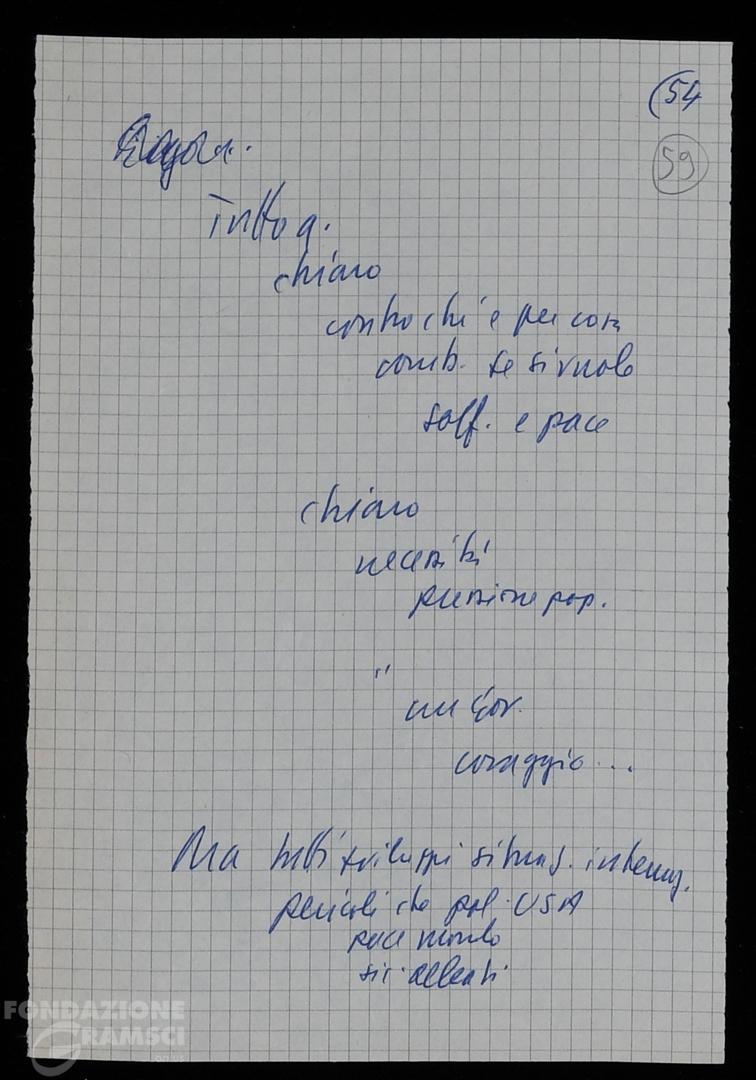 (54
59
Tutto q.
chiaro
contro chi e per cosa
comb. se si vuole
soff. e pace
chiaro
necessità
pressione pop.
"
un Gov.
coraggio...
Ma tutti sviluppi situaz. internaz.
pericoli che pol. USA
pace mondo
sic. alleati
FONDAZIONE
GRAMSCI